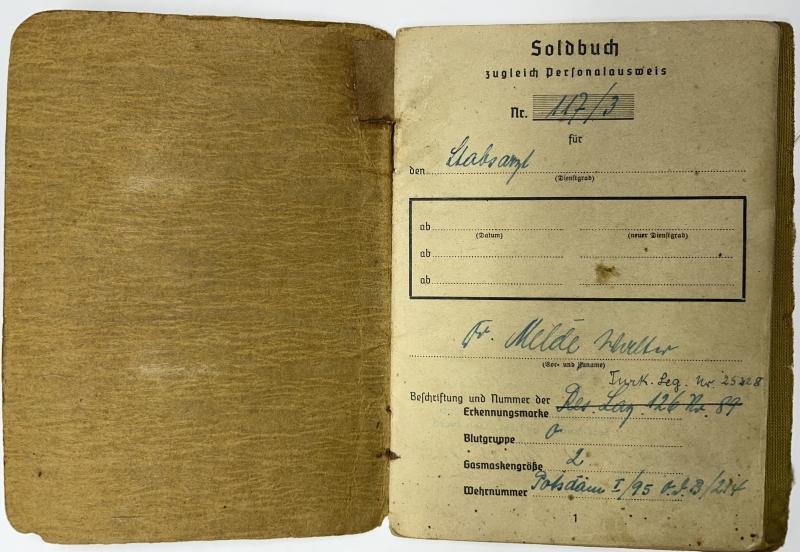 Soldbuch
zugleich Personalausweis
Nr. 117/3
für
den Stabsarzt
(Dienstgrad)
ab
(Datum) (neuer Dienstgrad)
ab
ab
Dr. Melde Walter
(Vor- und Zuname)
Turk. Leg. Nr.
Beschriftung und Nummer der
Erkennungsmarke Res. Laz 126 Nr. 89
Blutgruppe 0
Gasmaskengröße 2
Wehrnummer Potsdam I/95
1